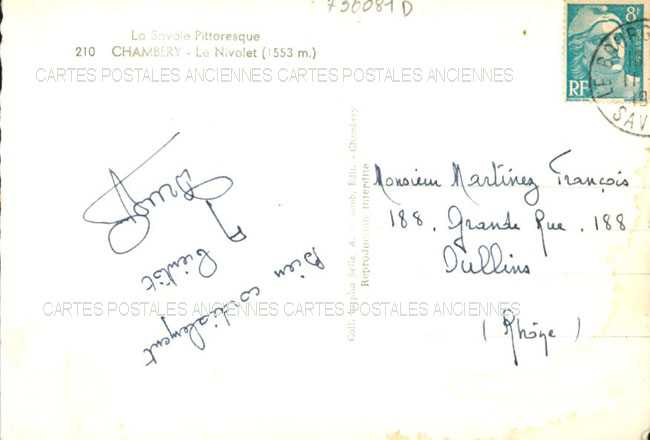 730081D
La Savoie Pittoresque
210 CHAMBERY - Le Nivolet (1553 m.)
CARTES POSTALES ANCIENNES CARTES POSTALES ANCIENNES
8F
RF
LE BOURG
19
SAV
Bien cordialement
A bientôt
Reproduction interdite
Monsieur Martinez François
188, Grande Rue, 188
Oullins
(Rhône)
CARTES POSTALES ANCIENNES CARTES POSTALES ANCIENNES